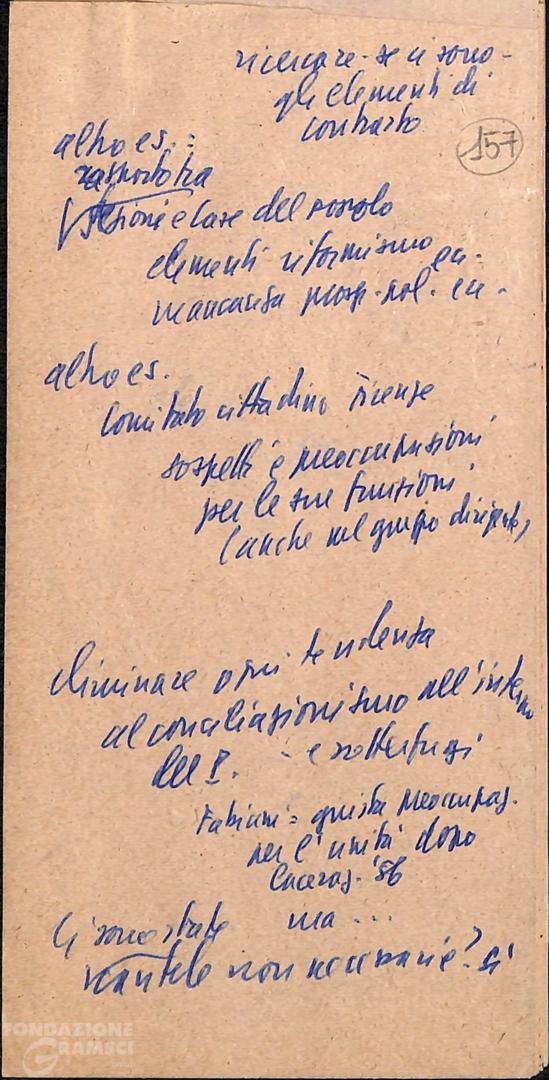 ricercare se ci sono -
gli elementi di
contrasto
157
altro es.:
rapporto tra
sezione e case del popolo
elementi riformismo ec.
mancanza prosp. pol. ec.
altro es.
Comitato cittadino Firenze
sospetti e preoccupazioni
per le sue funzioni
(anche nel gruppo dirigente)
eliminare ogni tendenza
al conciliazionismo all'interno
del P. - e sotterfugi
Fabiani = giusta preoccupaz.
per l'unità dopo
'56
ma ...
Ci sono state
cautele non necessarie? sì
FONDAZIONE
GRAMSCI